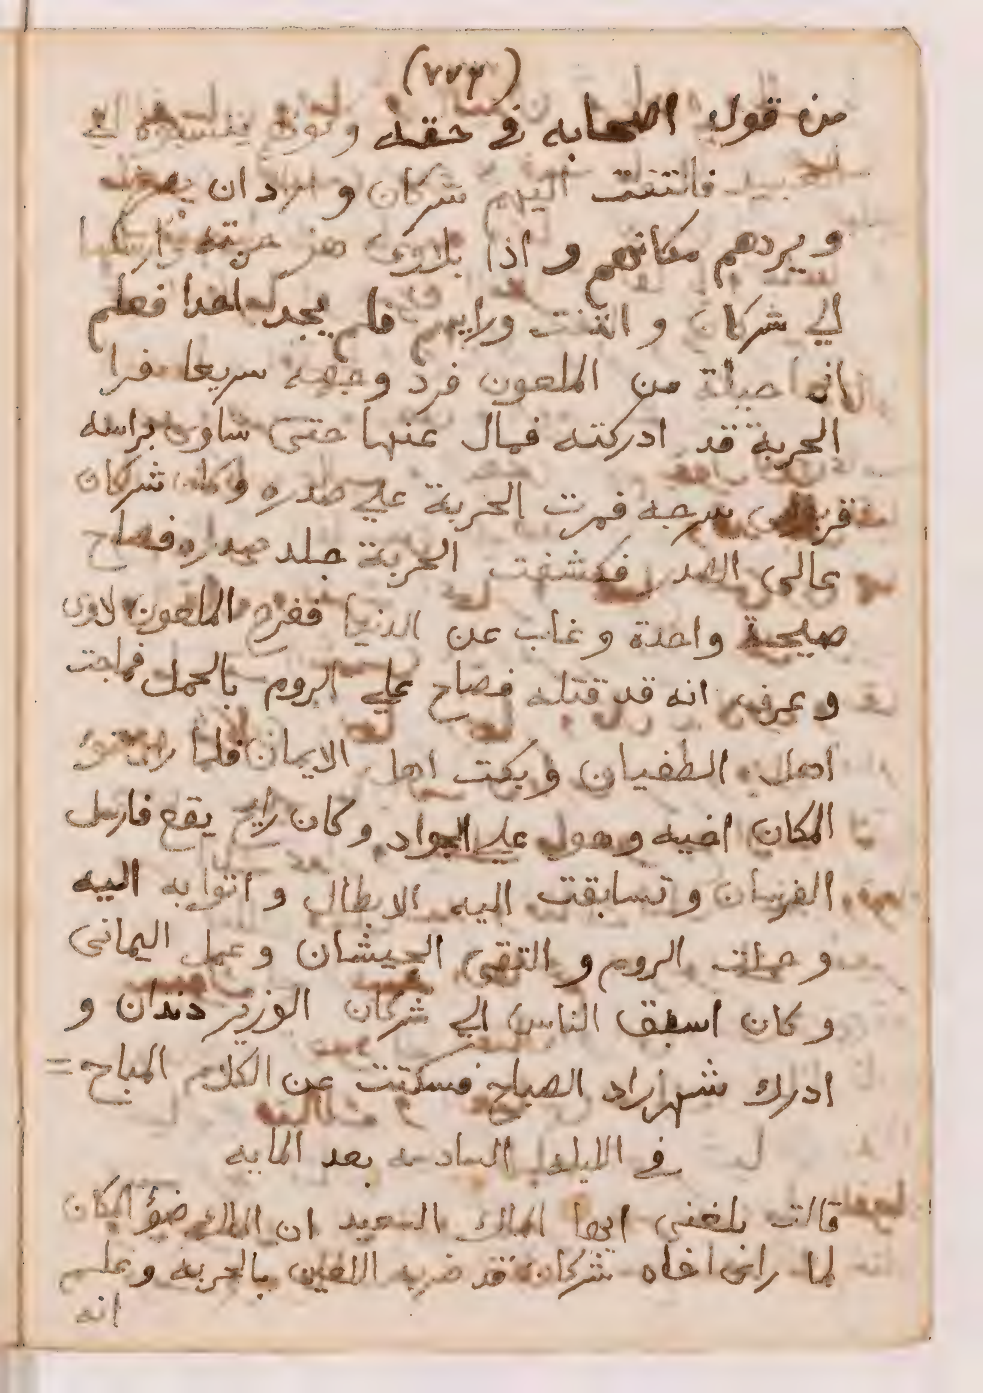 (٧٧٣)
من قول الصحابه في حقه
فالتفت اليهم شركان و اراد ان
و يردهم مكانهم و اذا بلاوي هز حربته
الي شركان و التفت ورايهم فلم يجد احدا فعلم
انها حيلة من الملعون فرد وجهه سريعا فرا
الحربة قد ادركته فمال عنها حتي ساوي براسه
سرجه فمرت الحربة علي صدره وكان شركان
عالي الصدر فكشفت الحربة جلد صدره فصاح
صيحة واحدة و غاب عن الدنيا ففرح الملعون لاوي
و عرف انه قد قتله فصاح علي الروم بالحمل فماجت
اهل الطغيان و بكت اهل الايمان فلما راي ضوء
المكان اخيه وهو علي الجواد وكان رايح يقع فارسل
الفرسان و تسابقت اليه الابطال و اتوا به اليه
و حملت الروم و التقي الجيشان و عمل اليماني
و كان اسبق الناس الي شركان الوزير دندان و
ادرك شهرزاد الصباح فسكتت عن الكلام المباح =
في الليلة السادسه بعد المايه
قالت بلغني ايها الملك السعيد ان الملك ضوء المكان
لما راي اخاه شركان قد ضربه اللعين بالحربه و علم
انه